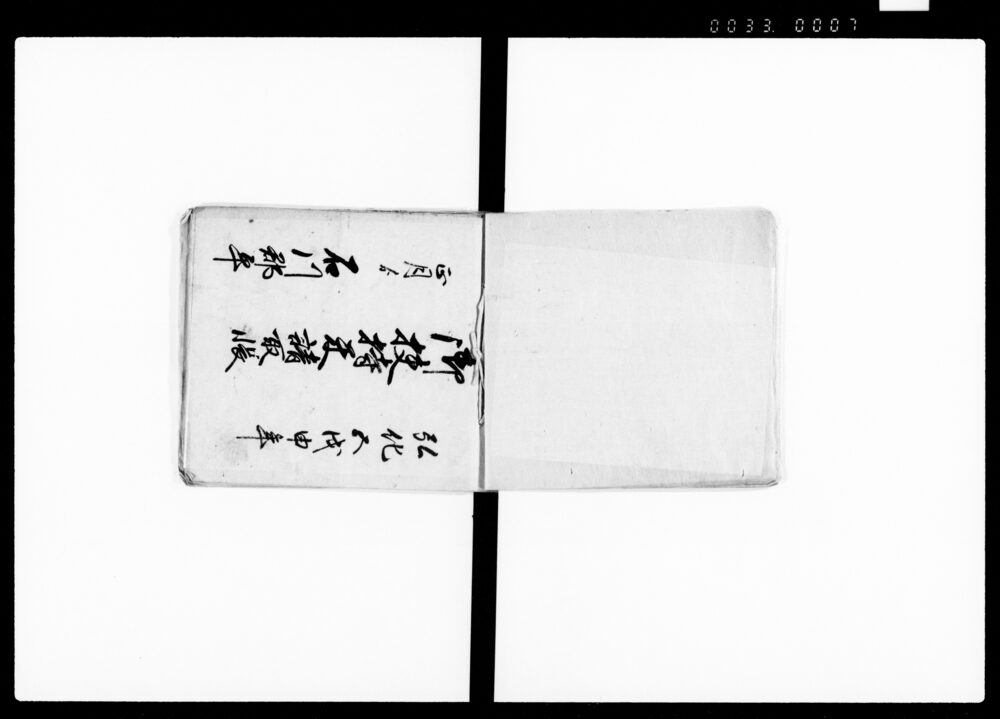 0033.0007
弘化五戊申年
御扶持米請取帳
正月吉
石川郡平